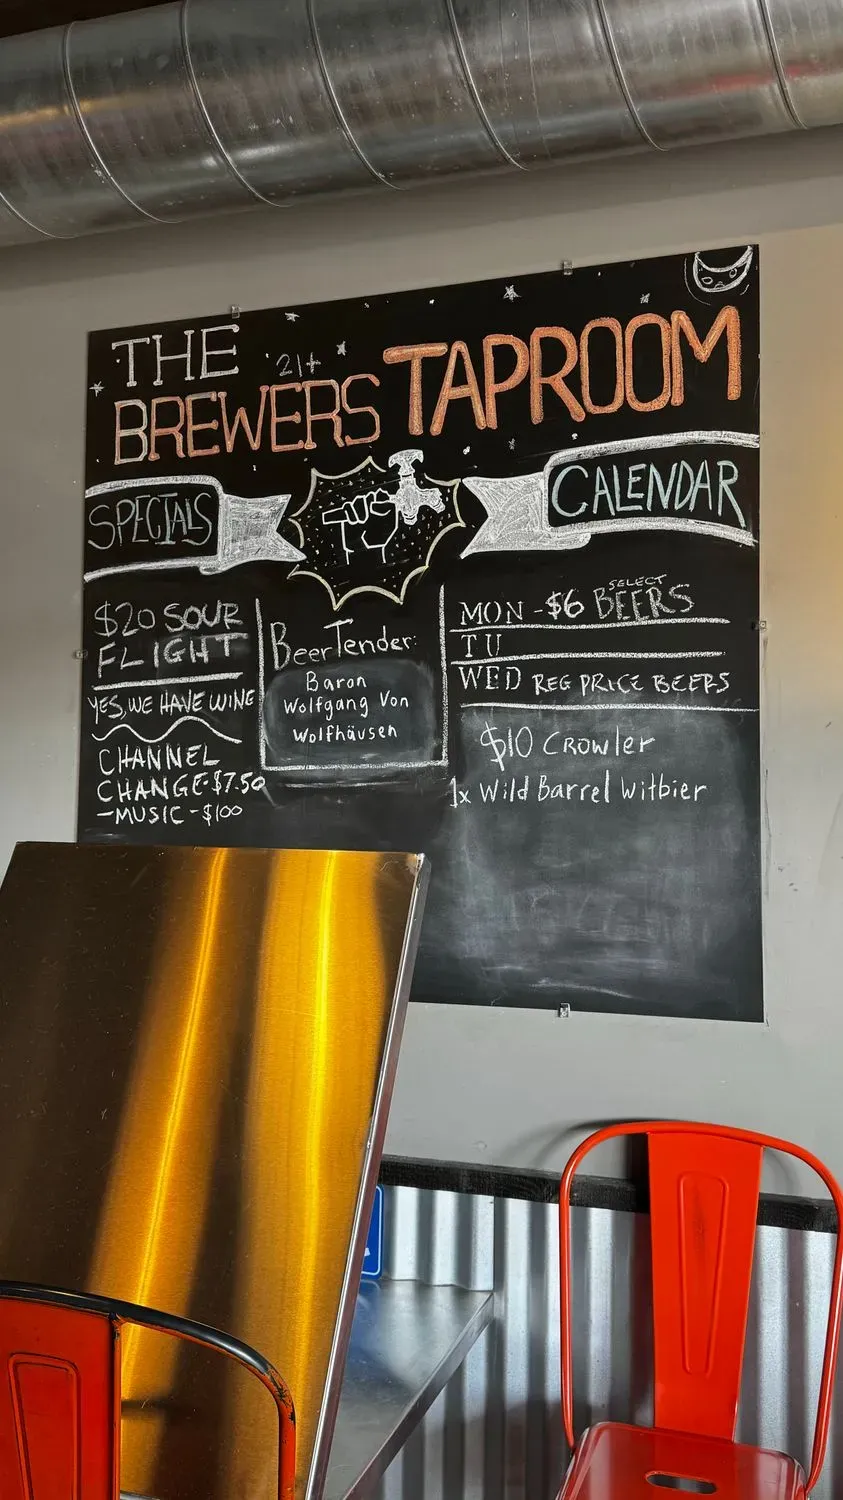 THE
21+
BREWERS TAPROOM
SPECIALS
CALENDAR
$20 SOUR
FLIGHT
YES, WE HAVE WINE
CHANNEL
CHANGE-$7.50
-MUSIC-$100
BeerTender:
Baron
Wolfgang Von
Wolfhäusen
SELECT
MON -$6 BEERS
TU
WED REG PRICE BEERS
$10 Crowler
1x Wild Barrel Witbier